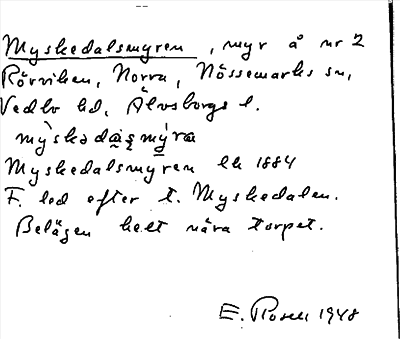 Myskedalsmyren, myr å nr 2
Rörviken, Norra, Nössemarks sn,
Vedbo hd, Älvsborgs l.
Myskedalsmyren lk 1884
F. led efter t. Myskedalen.
Belägen helt nära torpet.
E. Rosell 1948